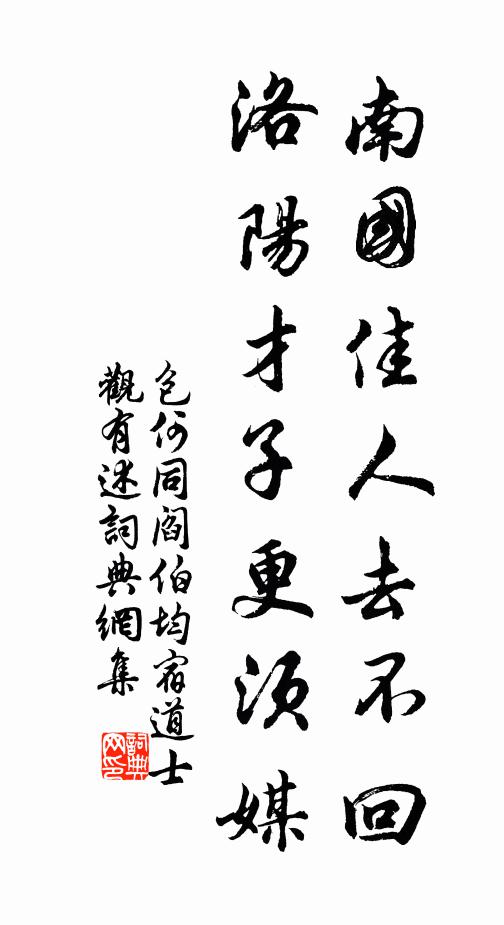 南國佳人去不回
洛陽才子更須媒
包何同閻伯均宿道士
觀有述詞典網集
詞典網印